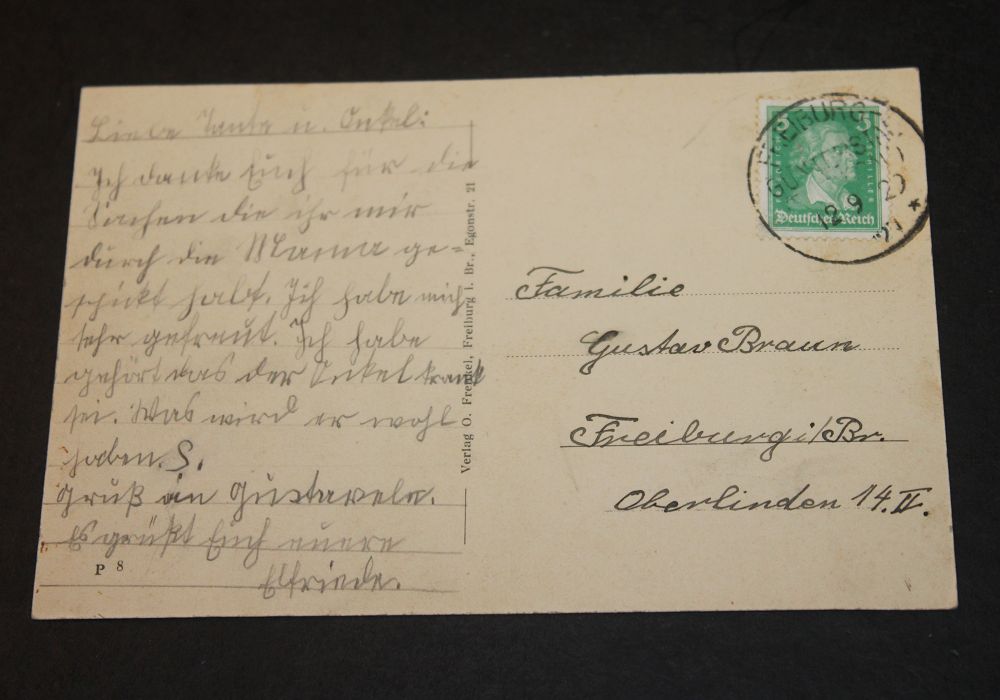 Liebe Tante u. Onkel:
Ich danke Euch für die
Sachen die ihr mir
durch die Mama ge=
schickt habt. Ich habe mich
sehr gefreut. Ich habe
gehört das der Onkel krank
sei. Was wird er wohl
haben. S.
Gruß an Gustavele.
Es grüßt Euch euere
Elfriede.
P 8
Verlag O. Frenkel, Freiburg i. Br., Egonstr. 21
FREIBURG
12 9
27
5 5
Deutsches Reich
Familie
Gustav Braun
Freiburg i/Br.
Oberlinden 14. II.